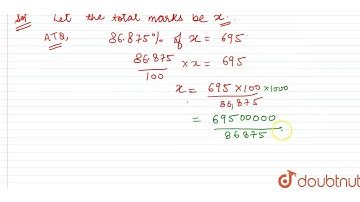 Sol Let the total marks be x.
ATQ, 86.875% of x = 695
86.875/100 × x = 695
x = 695 × 100 × 1000/86,875
= 69500000/86875
doubtnut